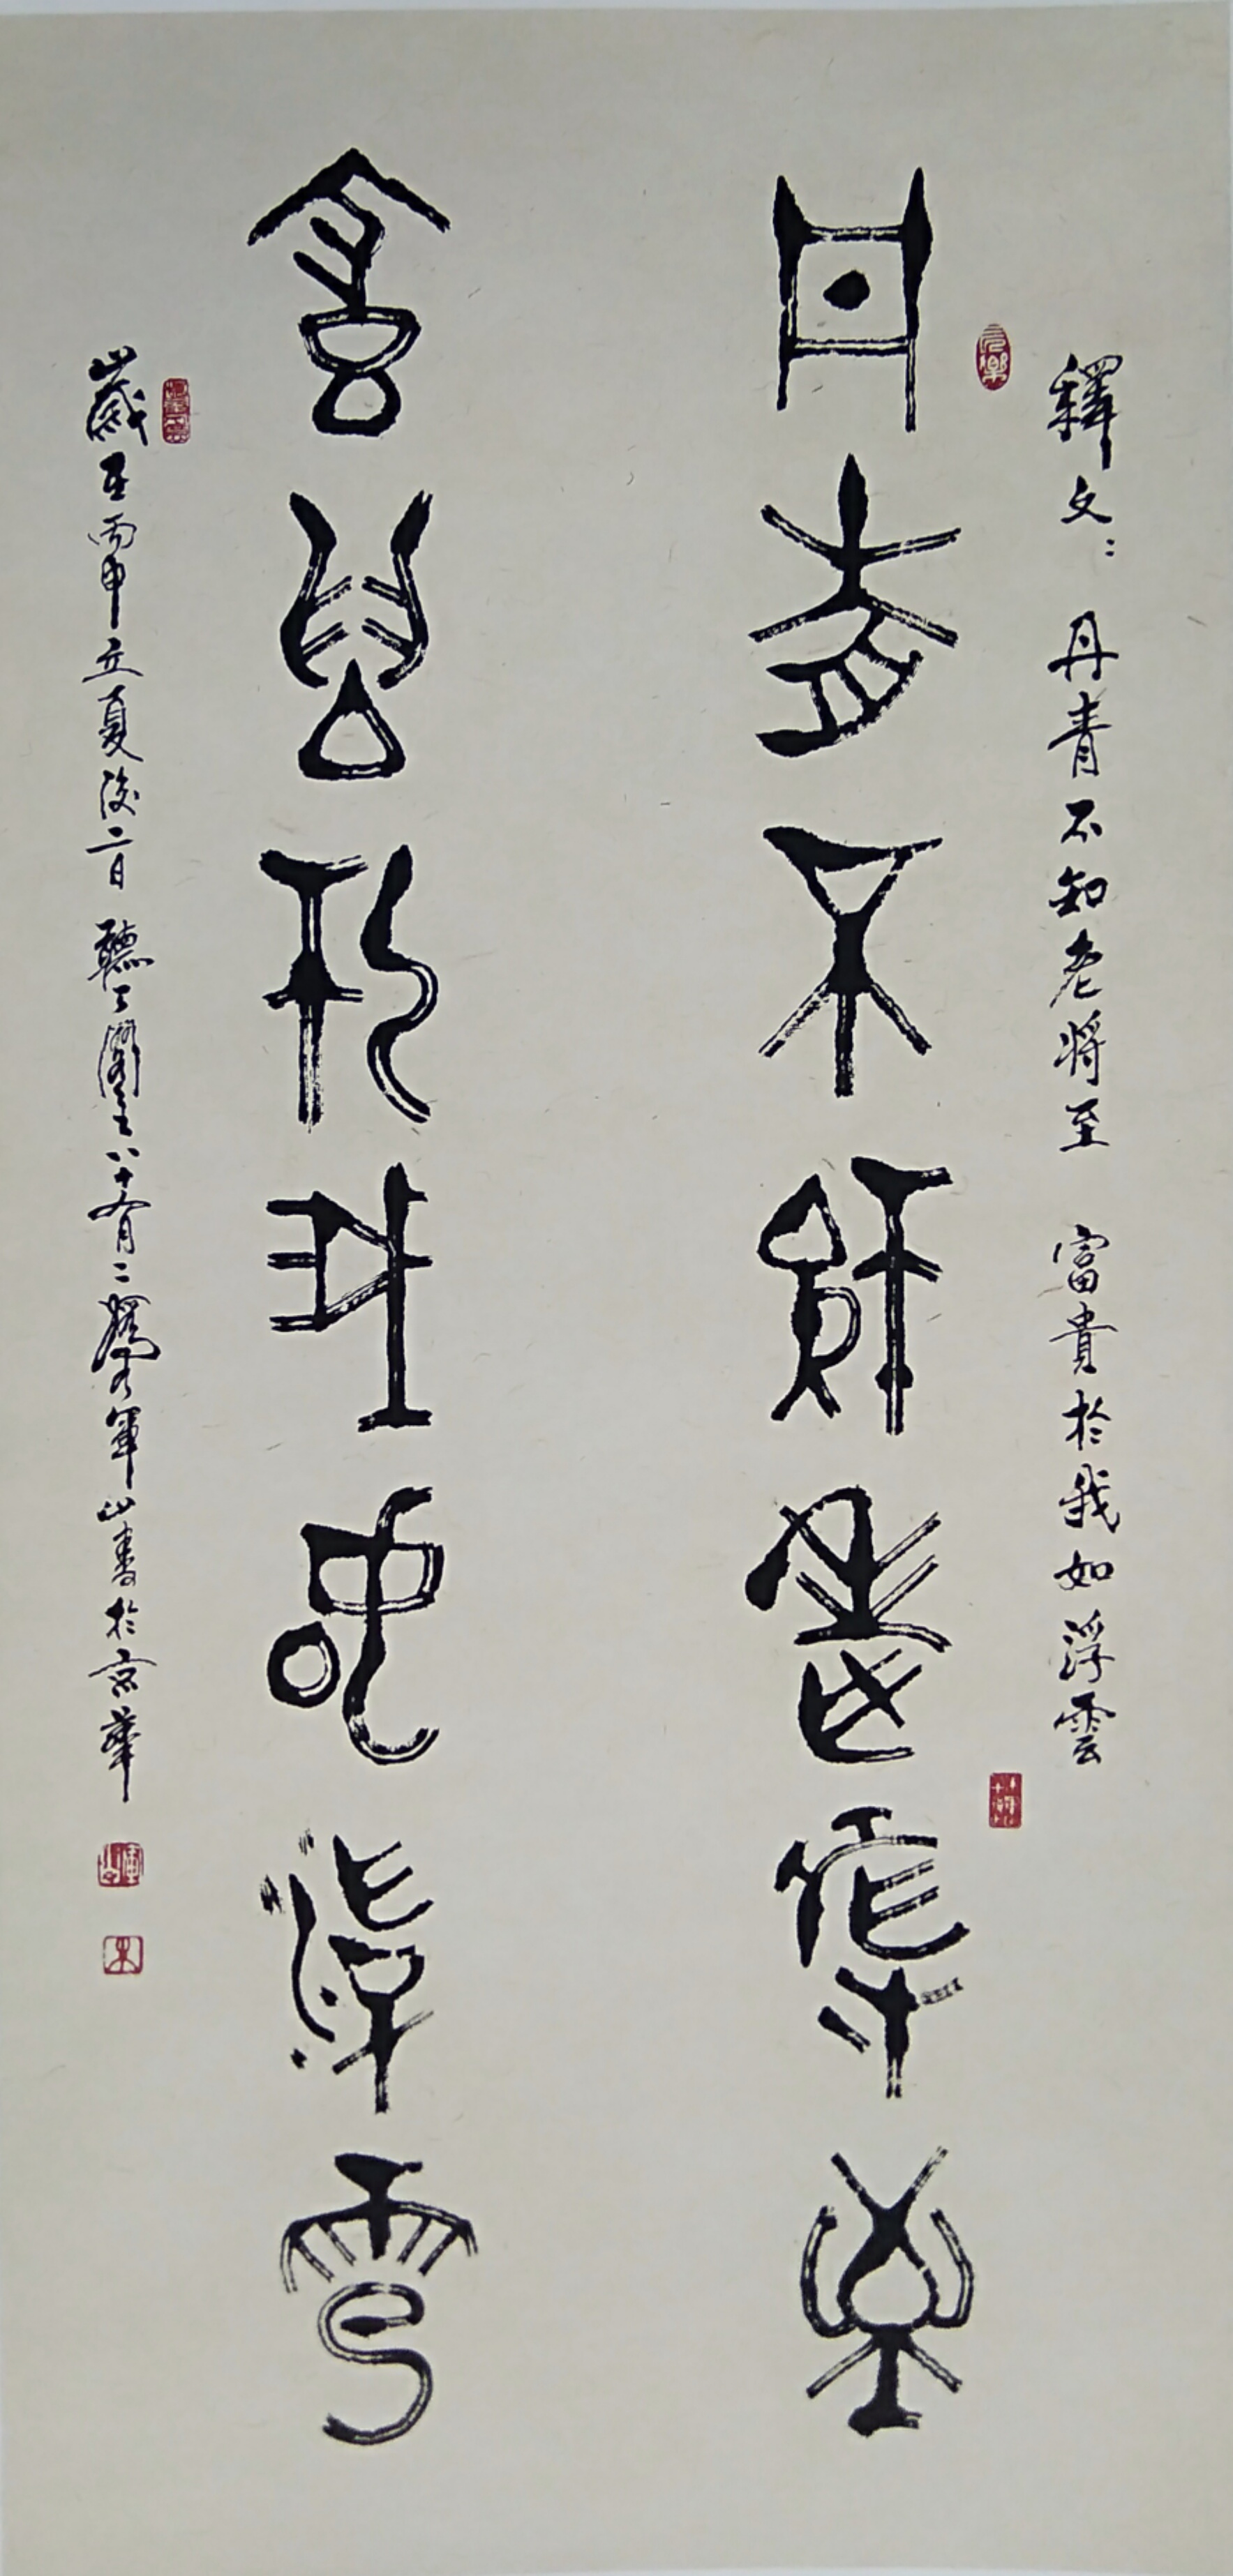 釋文：丹青不知老將至 富貴於我如浮雲
丹青不知老將至
富貴於我如浮雲
歲在丙申立夏後二日 聽 閣主八十有二 軍山書於京華